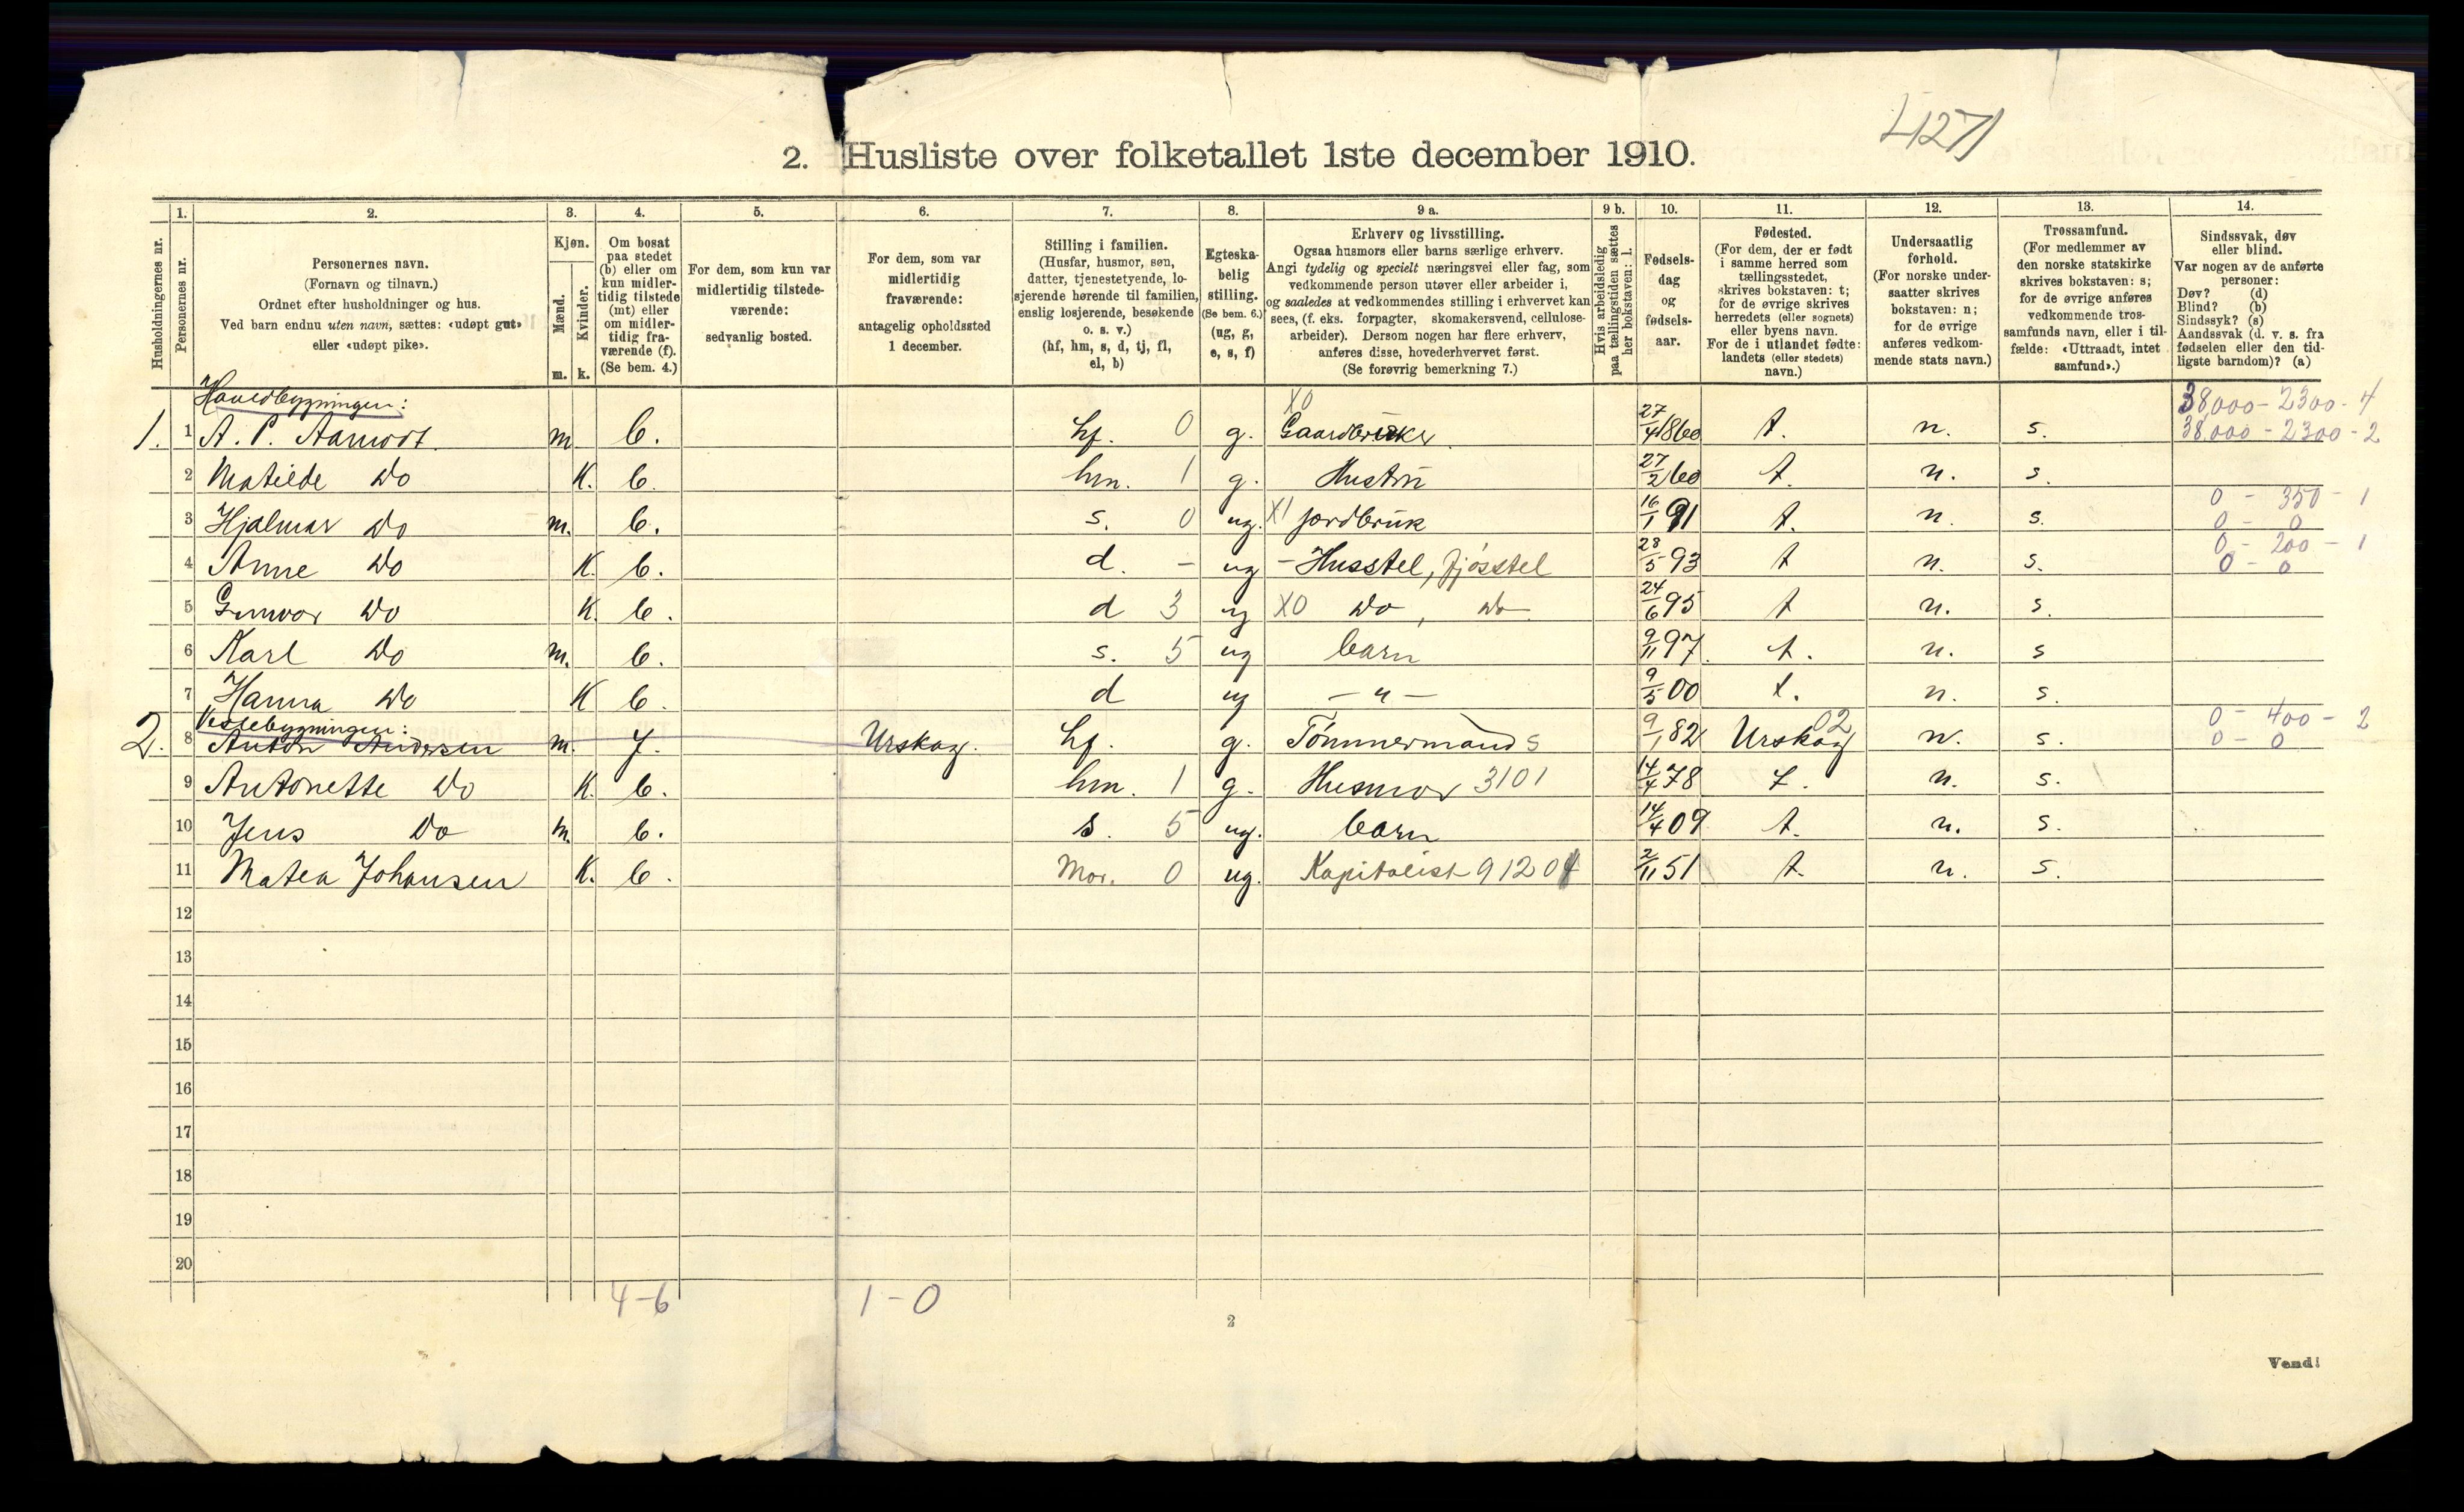 L127)
2. Husliste over folketallet 1ste december 1910.
Husholdningernes nr.
1.
Personernes nr.
2.
Personernes navn.
(Fornavn og tilnavn.)
Ordnet efter husholdninger og hus.
Ved barn endnu uten navn, sættes: «udøpt gut»
eller «udøpt pike».
3.
Kjøn.
Mænd.
m.
Kvinder.
k.
4.
Om bosat
paa stedet
(b) eller om
kun midler-
tidig tilstede
(mt) eller
om midler-
tidig fra-
værende (f).
(Se bem. 4.)
5.
For dem, som kun var
midlertidig tilstede-
værende:
sedvanlig bosted.
6.
For dem, som var
midlertidig
fraværende:
antagelig opholdssted
1 december.
7.
Stilling i familien.
(Husfar, husmor, søn,
datter, tjenestetyende, lo-
sjerende hørende til familien,
enslig losjerende, besøkende
o. s. v.)
(hf, hm, s, d, tj, fl,
el, b)
8.
Egteska-
belig
stilling.
(Se bem. 6.)
(ug, g,
e, s, f)
9 a.
Erhverv og livsstilling.
Ogsaa husmors eller barns særlige erhverv.
Angi tydelig og specielt næringsvei eller fag, som
vedkommende person utøver eller arbeider i,
og saaledes at vedkommendes stilling i erhvervet kan
sees, (f. eks. forpagter, skomakersvend, cellulose-
arbeider). Dersom nogen har flere erhverv,
anføres disse, hovederhvervet først.
(Se forøvrig bemerkning 7.)
9 b.
Hvis arbeidsledig
paa tællingstiden sættes
her bokstaven: l.
10.
Fødsels-
dag
og
fødsels-
aar.
11.
Fødested.
(For dem, der er født
i samme herred som
tællingsstedet,
skrives bokstaven: t;
for de øvrige skrives
herredets (eller sognets)
eller byens navn.
For de i utlandet fødte:
landets (eller stedets)
navn.)
12.
Undersaatlig
forhold.
(For norske under-
saatter skrives
bokstaven: n;
for de øvrige
anføres vedkom-
mende stats navn.)
13.
Trossamfund.
(For medlemmer av
den norske statskirke
skrives bokstaven: s;
for de øvrige anføres
vedkommende tros-
samfunds navn, eller i til-
fælde: «Uttraadt, intet
samfund».)
14.
Sindssvak, døv
eller blind.
Var nogen av de anførte
personer:
Døv? (d)
Blind? (b)
Sindssyk? (s)
Aandssvak (d. v. s. fra
fødselen eller den tid-
ligste barndom)? (a)
Hovedbygningen: X0 38,000 - 2300 - 4
1. 1 A. P. Aamodt. m b. hf. 0 g. Gaardbruker 27/4 1860 t. n. s. 38,000 - 2300 - 2
2 Matilde Do K. b. hm. 1 g. Hustru 27/2 60 t. n. s.
3 Hjalmar Do m. b. s. 0 ug. X1 jordbruk 16/1 91 t. n. s. 0 - 350 - 1 0 - 0
4 Anne Do K. b. d. - ug - Husstel, fjøsstel 28/5 93 t n. s. 0 - 200 - 1 0 - 0
5 Gunvor Do K. b. d 3 ug X0 Do, Do 24/6 95 t n. s.
6 Karl Do m. b. s. 5 ug barn 9/11 97. t. n. s
7 Hanna Do K b. d ug - " - 9/5 00 t. n. s.
Vestebygningen:
2. 8 Anton Andersen m. f. Urskog. hf. g. Tømmermand s 9/1 82 Urskog 02 n. s. 0 - 400 - 2 0 - 0
9 Antonette Do K. b. hm. 1 g. Husmor 3101 14/4 78 t. n. s.
10 Jens Do m. b. s. 5 ug. barn 14/4 09 t. n. s.
11 Matea Johansen K. b. Mor. 0 ug. Kapitalist 91204 2/11 51 t. n. s.
12
13
14
15
16
17
18
19
20
4-6 1-0
2
Vend!